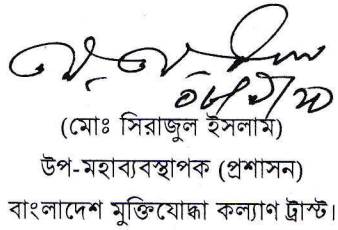 (মোঃ সিরাজুল ইসলাম)
উপ-মহাব্যবস্থাপক (প্রশাসন)
বাংলাদেশ মুক্তিযোদ্ধা কল্যাণ ট্রাস্ট।